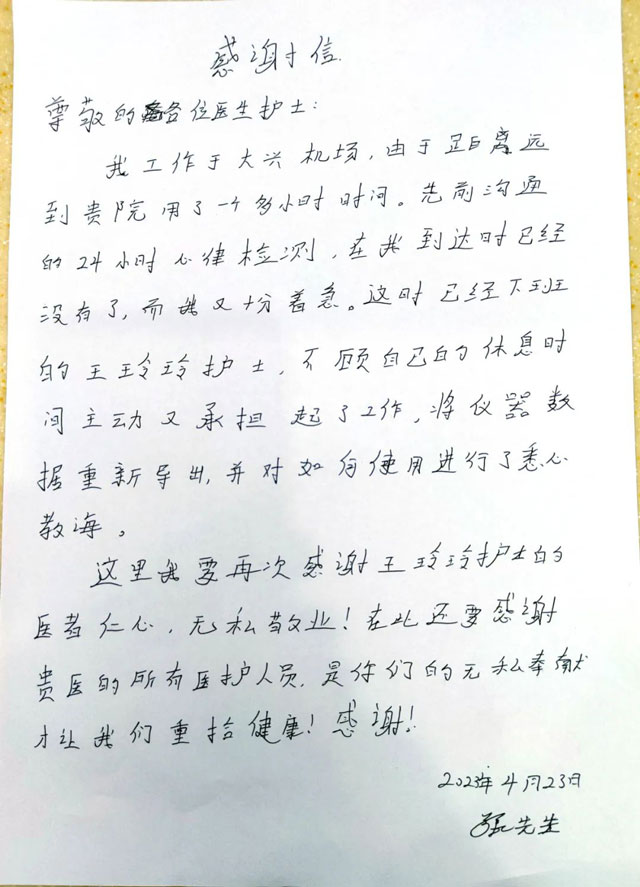 感谢信
尊敬的各位医生护士:
我工作于大兴机场,由于距离远
到贵院用了一个多小时时间。先前沟通
的24小时心律检测,在我到达时已经
没有了,而我又十分着急。这时已经下班
的王玲玲护士,不顾自己的休息时
间主动又承担起了工作,将仪器数
据重新导出,并对如何使用进行了悉心
教诲。
这里我要再次感谢王玲玲护士的
医者仁心,无私敬业!在此还要感谢
贵医的所有医护人员,是你们的无私奉献
才让我们重拾健康!感谢!
2023年4月23日
张先生